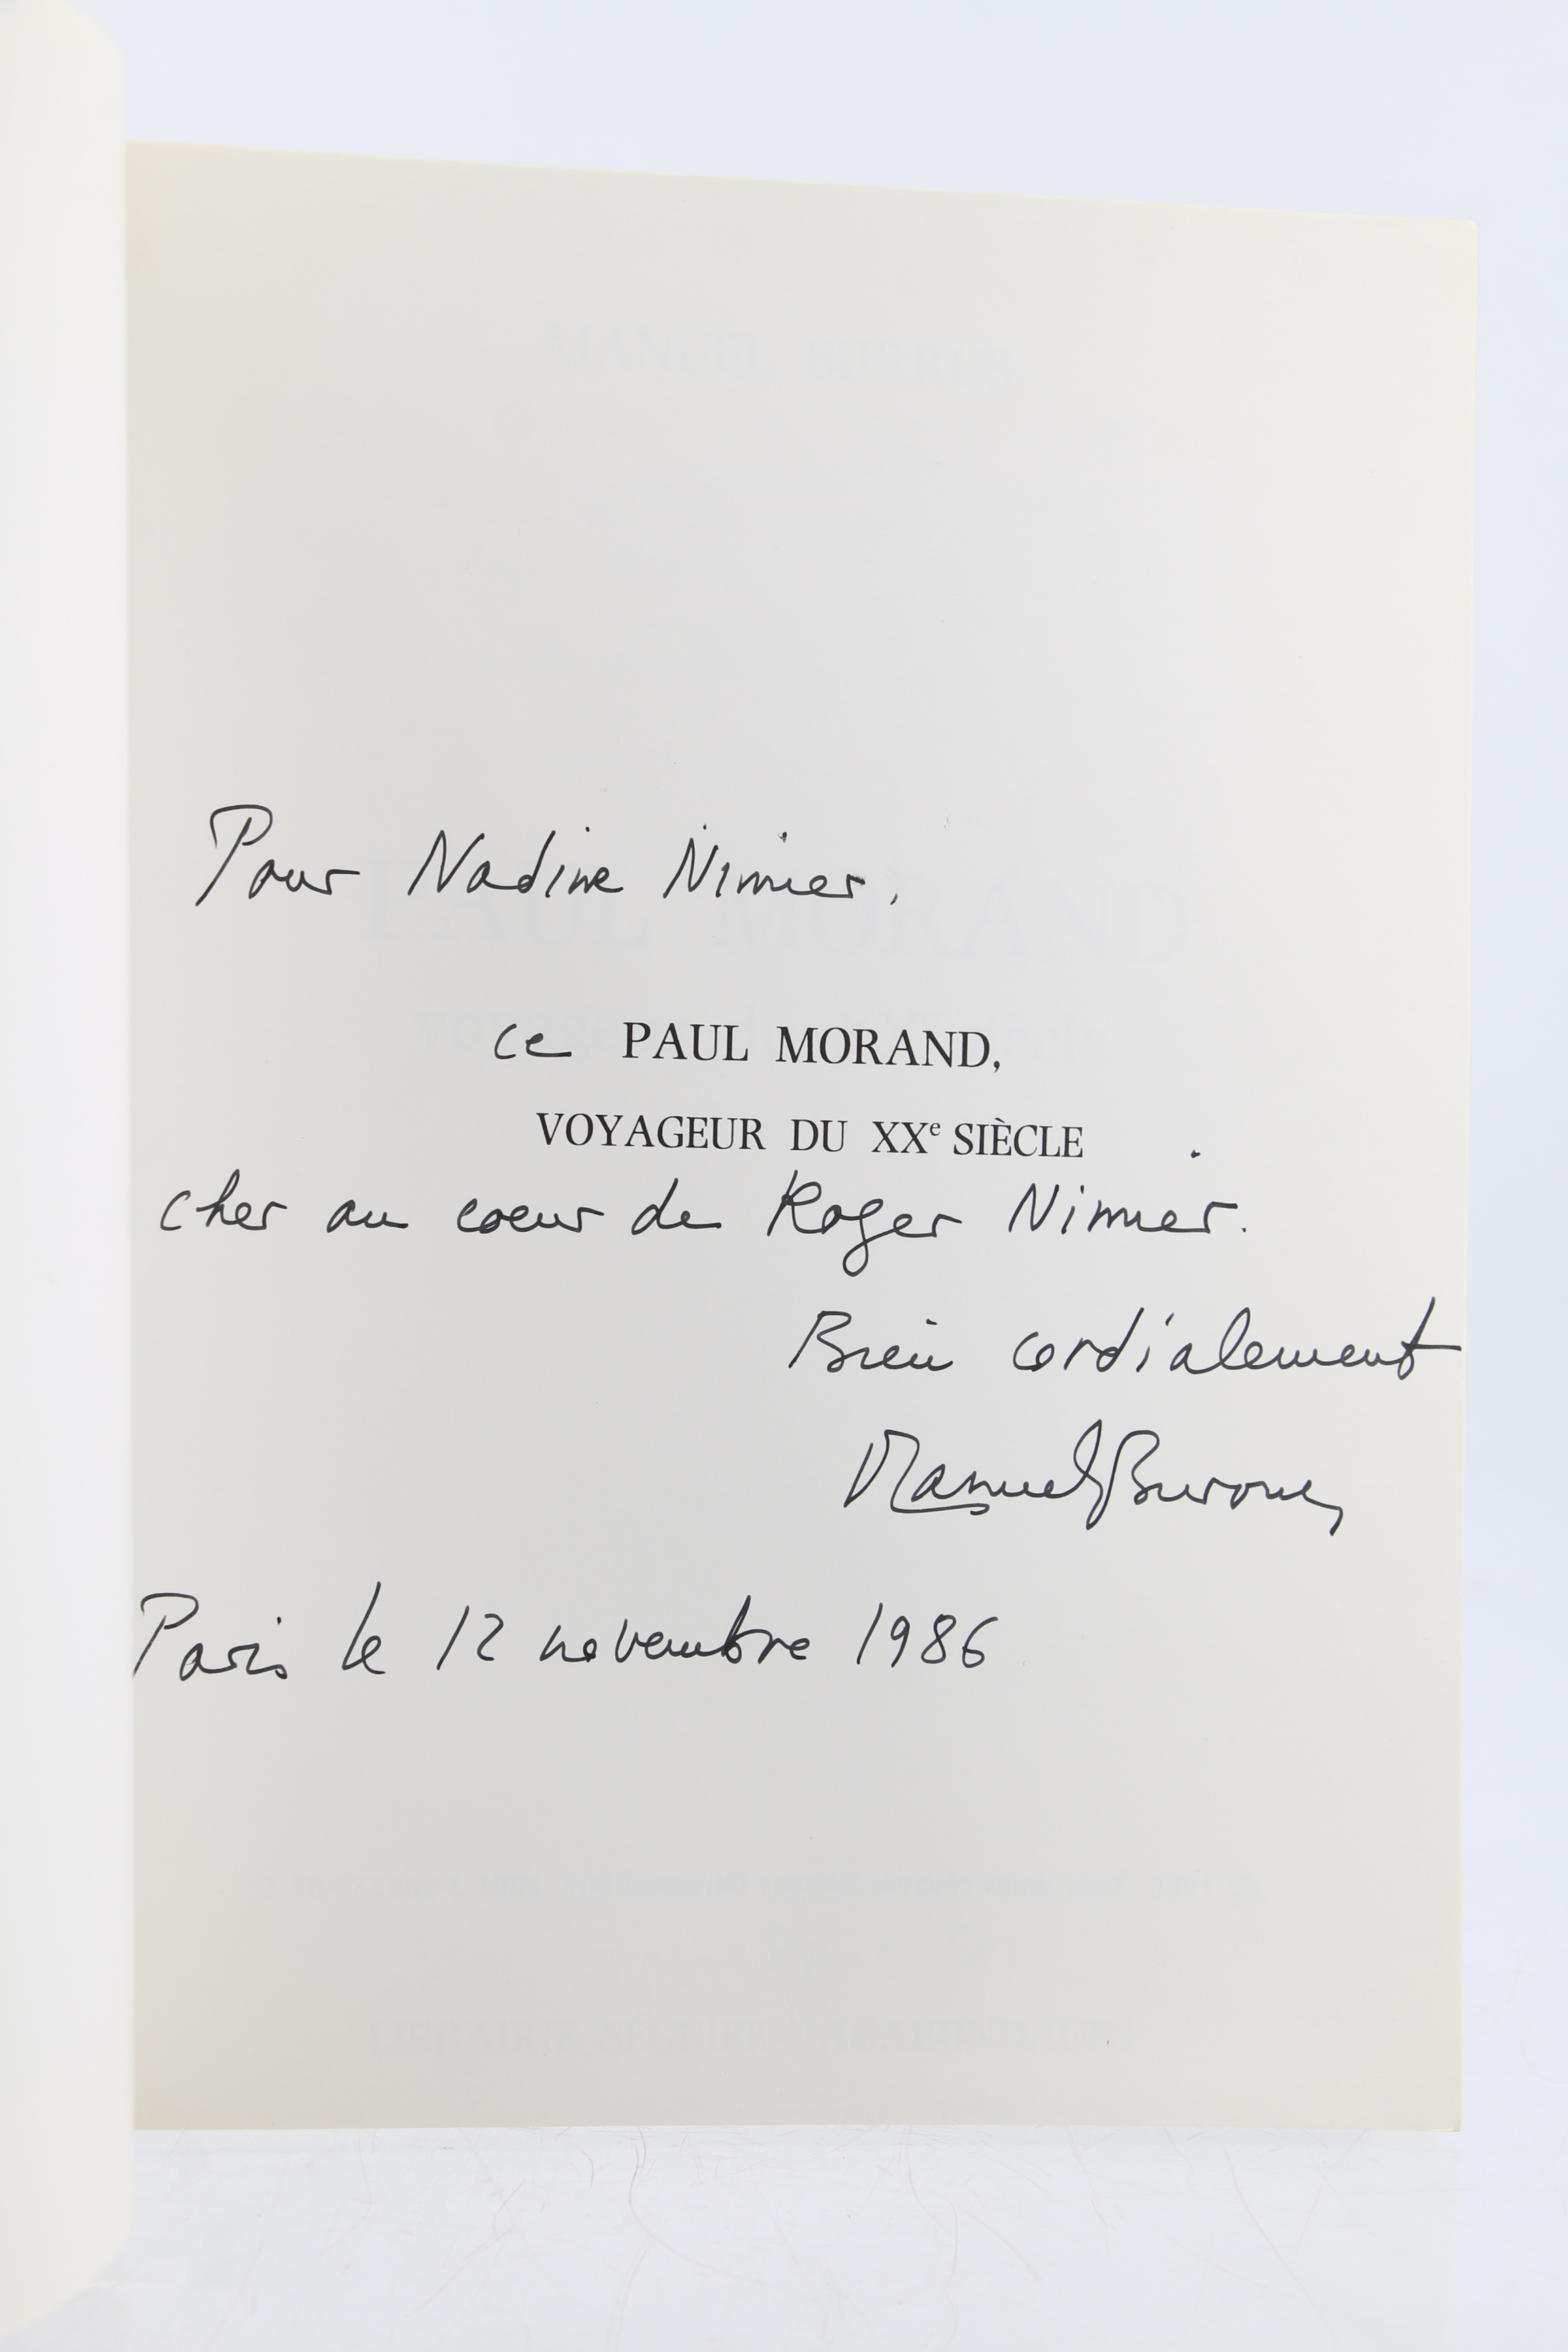 MANUEL BURRUS
Pour Nadine Nimier,
PAUL MORAND
ce PAUL MORAND,
VOYAGEUR DU XXe SIÈCLE
cher au coeur de Roger Nimier.
Bien cordialement
Manuel Burrus
Paris le 12 novembre 1986